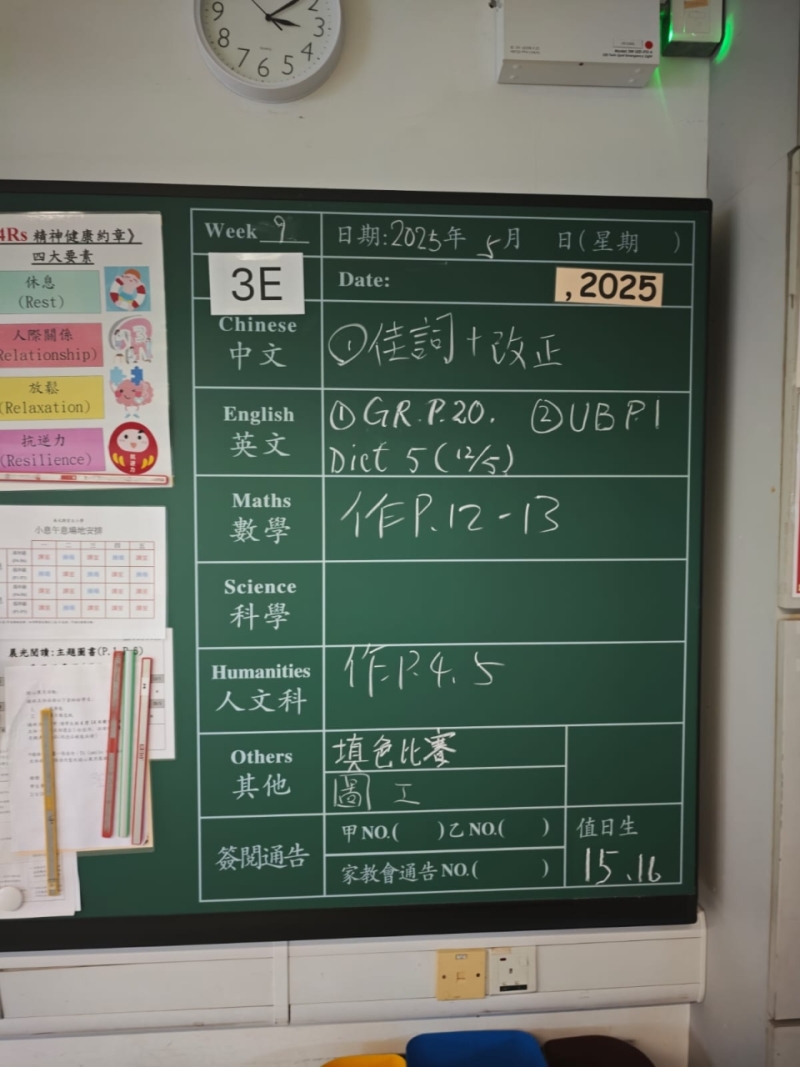 9 2 3 8 7 6 5 4
4Rs 精神健康約章》
四大要素
休息
(Rest)
人際關係
Relationship)
放鬆
(Relaxation)
抗逆力
(Resilience)
小息午息場地安排
一 二 三 四 五
晨光閱讀:主題圖書(P.1-P.6)
Week 9
日期:2025年 5月 日(星期 )
3E
Date: , 2025
Chinese
中文
①佳詞+改正
English
英文
①GR.P.20. ②UB P.1
Dict 5 (12/5)
Maths
數學
作P.12-13
Science
科學
Humanities
人文科
作.P.4.5
Others
其他
填色比賽
圖工
簽閱通告
甲NO.( )乙NO.( )
家教會通告NO.( )
值日生
15.16